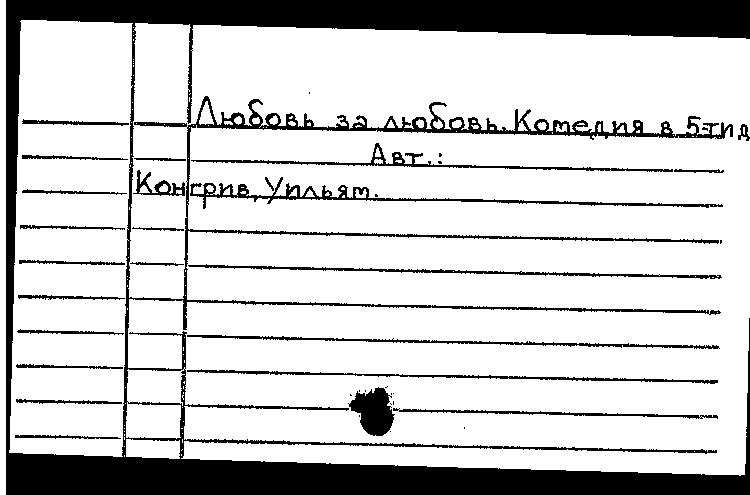 Любовь за любовь. Комедия в 5-ти д
Авт.:
Конгрив, Уильям.